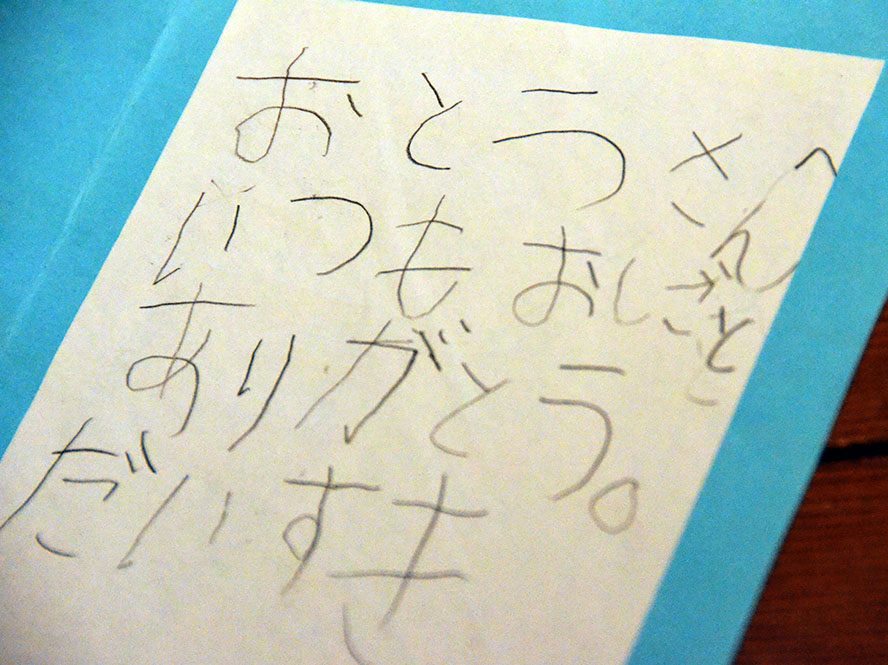 おとうさんへ
いつもおしごと
ありがとう。
だいすき